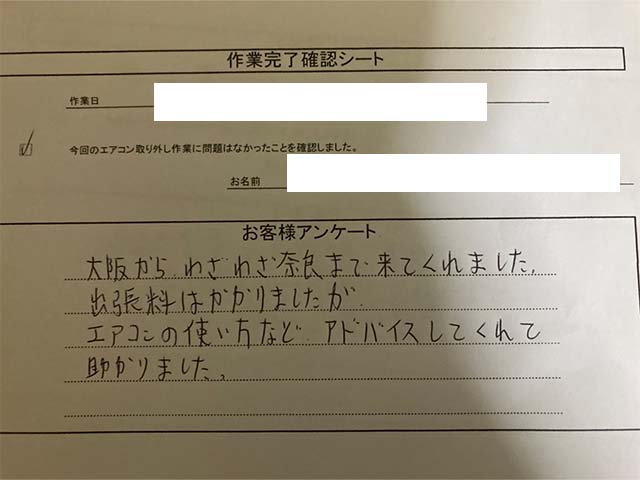 作業完了確認シート
作業日
今回のエアコン取り外し作業に問題はなかったことを確認しました。
お名前
お客様アンケート
大阪から わざわざ奈良まで来てくれました。
出張料はかかりましたが
エアコンの使い方など アドバイスしてくれて
助かりました。